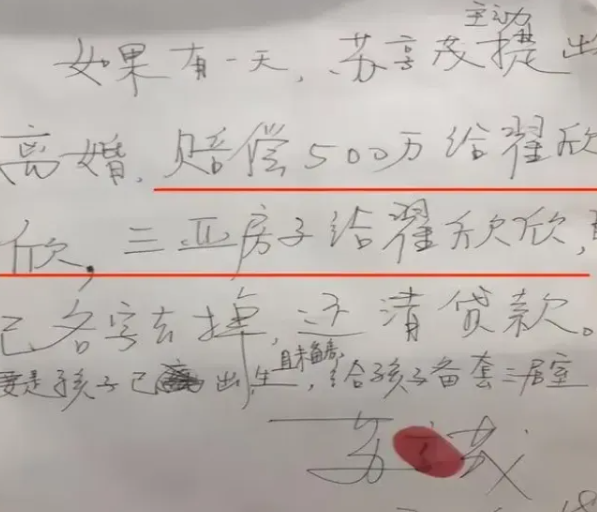 主动
如果有一天,苏享茂提出
离婚,赔偿500万给翟欣
欣,三亚房子给翟欣欣,
己名字去掉,还清贷款。
且未备房,
要是孩子已出生,给孩子备套二居室
苏享茂